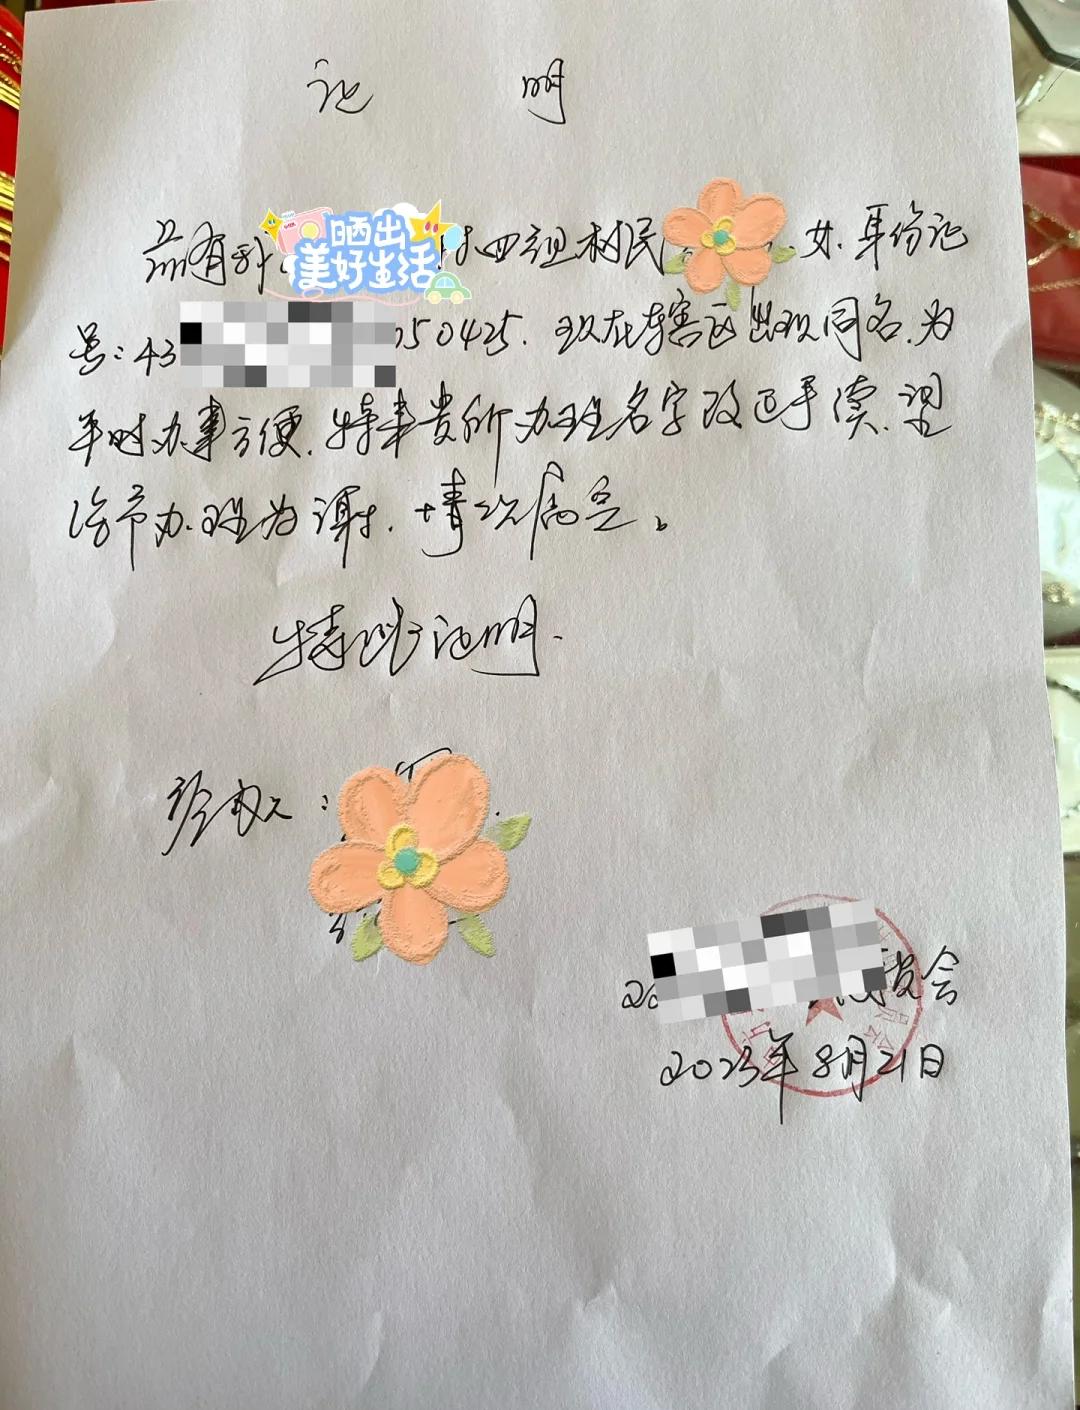 证 明
兹有
晒出
美好生活
村四组村民 女.身份证
号:43 050425.现在辖区出现同名.为
平时办事方便.特来贵所办理名字改正手续.望
给予办理为谢.情况属实。
特此证明.
经办人:
委会
2023年8月21日